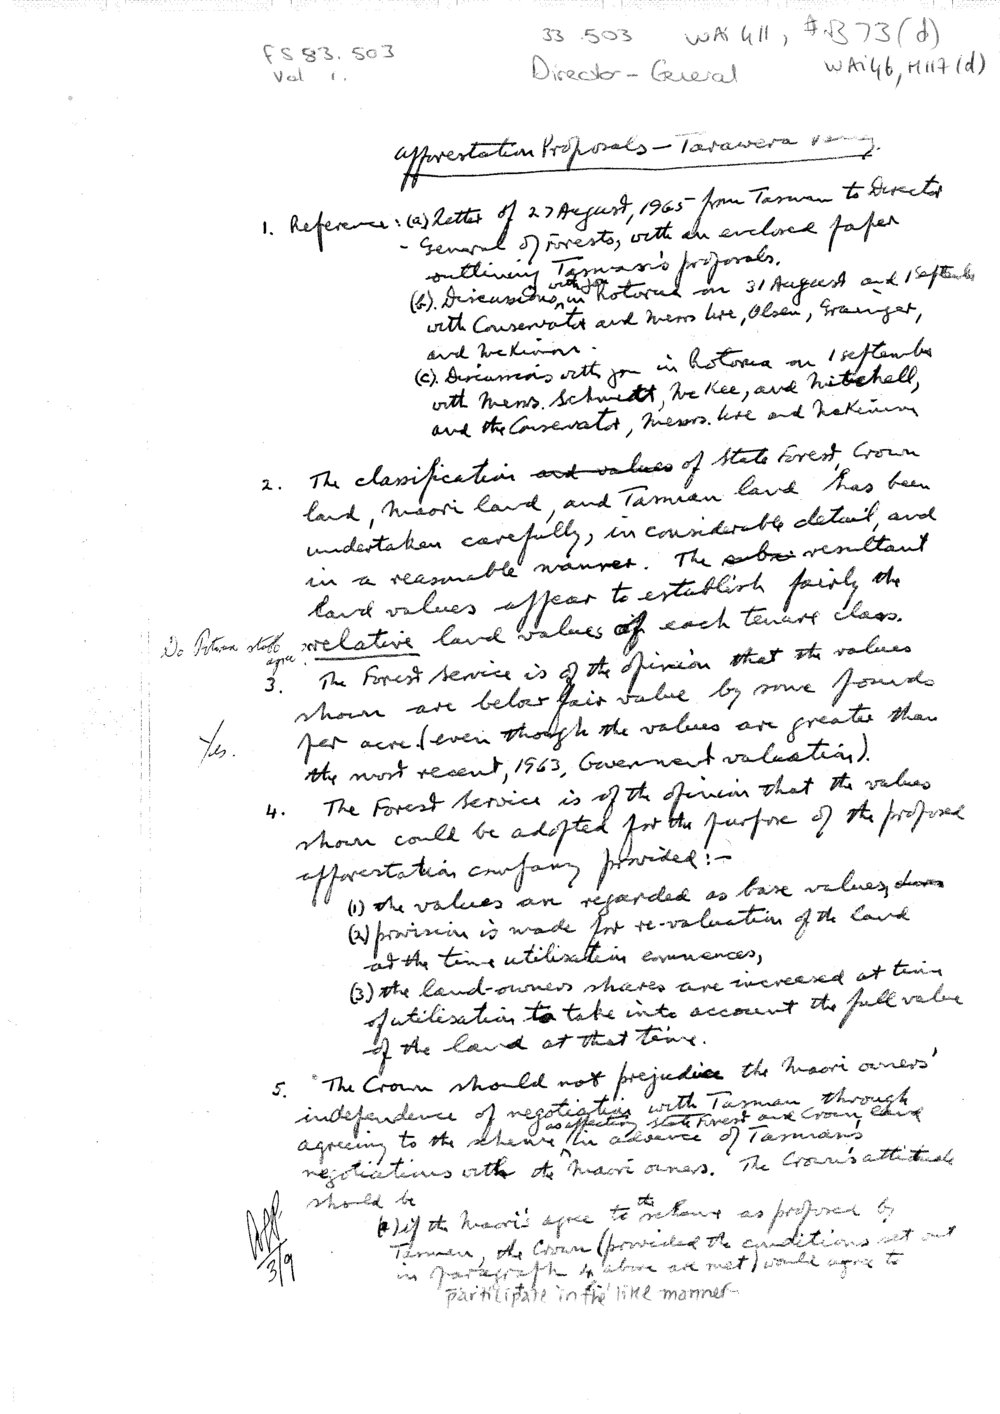 FS 83.503
Vol 1.
33.503
WAi 411, #B73(d)
WAi 46, M117(d)
Director - General
Afforestation Proposals - Tarawera
1. Reference: (a) Letter of 27 August, 1965 from Tasman to Director
- General of Forests, with an enclosed paper
outlining Tasman's proposals.
(b). Discussions with you in Rotorua on 31 August and 1 September
with Conservator and Messrs Ure, Olsen, Grainger,
and McKinnon.
(c). Discussions with you in Rotorua on 1 September
with Messrs. Schmidt, McKee, and Mitchell,
and the Conservator, Messrs. Ure and McKinnon
2. The classification and values of State Forest, Crown
land, Maori land, and Tasman land has been
undertaken carefully, in considerable detail, and
in a reasonable manner. The resultant
land values appear to establish fairly the
relative land values of each tenure class.
Do Rotorua staff
agree
3. The Forest Service is of the opinion that the values
shown are below fair value by some pounds
per acre (even though the values are greater than
the most recent, 1963, Government valuation).
Yes.
4. The Forest Service is of the opinion that the values
shown could be adopted for the purpose of the proposed
afforestation company provided:-
(1) the values are regarded as base values,
(2) provision is made for re-valuation of the land
at the time utilisation commences,
(3) the land-owners shares are increased at time
of utilisation to take into account the full value
of the land at that time.
5. The Crown should not prejudice the Maori owners'
independence of negotiation with Tasman through
agreeing to the scheme as affecting State Forest and Crown land in advance of Tasman's
negotiations with the Maori owners. The Crown's attitude
should be
(a) if the Maori's agree to the scheme as proposed by
Tasman, the Crown (provided the conditions set out
in paragraph 4 above are met) would agree to
participate in the like manner
3/9